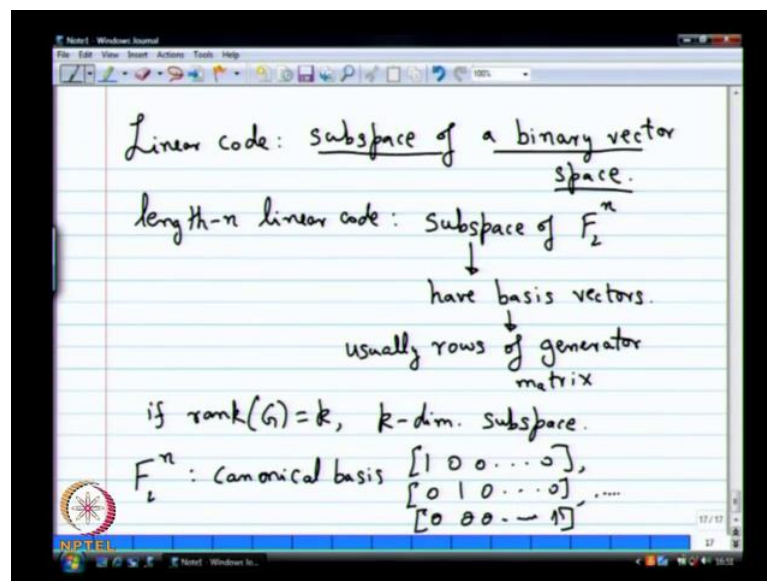 Note1 - Windows Journal
File Edit View Insert Actions Tools Help
100%
Linear code: subspace of a binary vector
space.
length-n linear code: subspace of F₂ⁿ
↓
have basis vectors.
↓
usually rows of generator
matrix
if rank(G) = k, k-dim. subspace.
F₂ⁿ : canonical basis [1 0 0 . . . 0],
[0 1 0 . . . 0], ....
[0 0 0 . . . 1]
NPTEL
17 / 17
17
Note1 - Windows Jo...
16:51